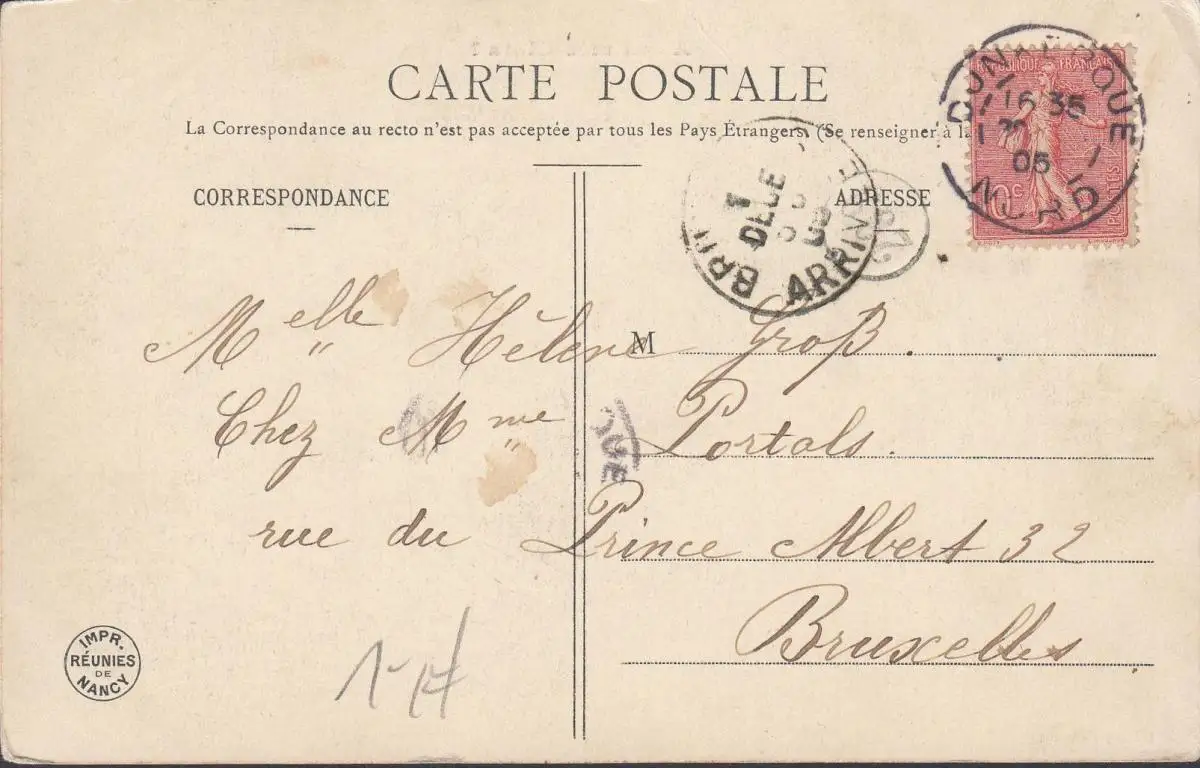 CARTE POSTALE
La Correspondance au recto n'est pas acceptée par tous les Pays Étrangers. (Se renseigner à la
CORRESPONDANCE
ADRESSE
RÉPUBLIQUE FRANÇAISE
10c
POSTES
DUNKERQUE
16 35
05
NORD
DECE
ARRIV
Melle Hélène Groß.
M
Chez Mme Portals.
rue du Prince Albert 32
Bruxelles
QUE
IMPR.
RÉUNIES
DE
NANCY